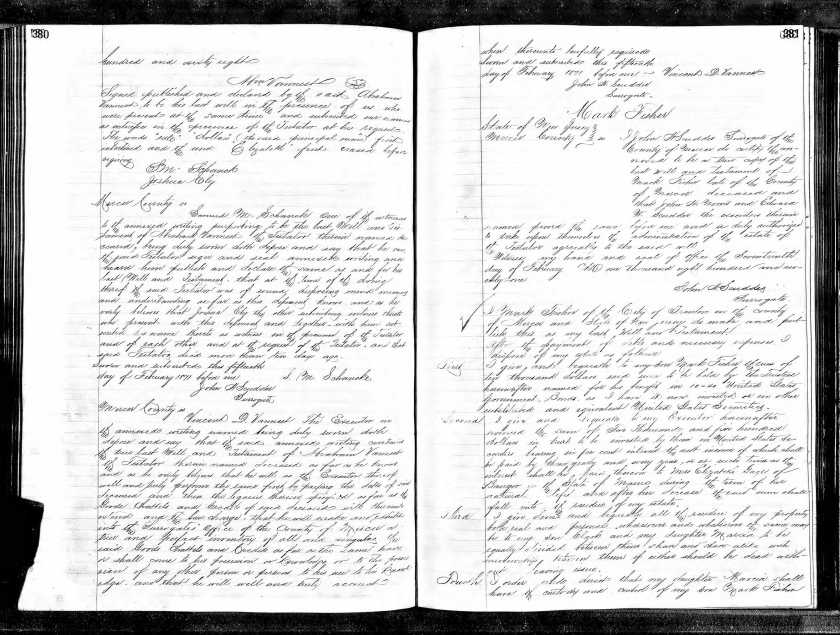 380
hundred and sixty eight
Abm Vannest
Signed published and declared by the said Abraham
Vannest to be his last will in the presence of us who
were present at the same time and subscribed our names
as witnesses in the presence of the Testator at his request
The words
interlined and the word Elizabeth first erased before
signing
S. M. Schanck
Joshua Ely
Mercer County ss
Samuel M. Schanck one of the witnesses
to the annexed writing purporting to be the last Will and Tes
tament of Abraham Vannest the Testator therein named de
ceased, being duly sworn doth depose and say that he saw
the said Testator sign and seal annexed writing and
heard him publish and declare the same as and for his
last Will and Testament. that at the time of the doing
thereof the said Testator was of sound disposing mind memory
and understanding as far as this deponent knows and as he
verily believes that Joshua Ely the other subscribing witness thereto
was present with this deponent and together with him sub
scribed names thereto as witnesses in the presence of the Testator
and of each other and at the request of the Testator, and that
said Testator died more than ten days ago
Sworn and subscribed this fifteenth
day of February 1871 before me S. M. Schancke
John H Scudder
Surrogate
Mercer County ss
Vincent D. Vannest The Executor in
the annexed writing named being duly sworn doth
depose and say that the said annexed writing contains
the true last Will and Testament of Abraham Vannest
the Testator therein named deceased as far as he knows
and as he verily believes that he will as the Executor thereof
well and truly perform the same first by paying the debts of said
deceased and then the legacies therein specified as far as the
Goods Chattels and Credits of said deceased will thereunto
extend and the law charge that he will make and exhibit
into the Surrogates Office of the County of Mercer a
true and perfect inventory of all and singular the
said Goods Chattels and Credits as far as the same have
or shall come to his possession or knowledge or to the posses
sion of any other person or persons to his use to his knowl
edge and that he will well and truly account
381
when thereunto lawfully required
Sworn and subscribed this fifteenth
day of February 1871 before me Vincent D. Vannest
John H. Scudder
Surrogate
Mark Fisher
State of New Jersey
Mercer County ss
I John H Scudder Surrogate of the
County of Mercer do certify the an-
nexed to be a true copy of the
last will and testament of
Mark Fisher late of the County
of Mercer deceased and
that John H and Edward
W. Scudder the executors therein
named proved the same before me and is duly authorized
to take upon themselves the administration of the estate of
the Testator agreeable to the said will
Witness my hand and seal of Office the Seventeenth
day of February AD one thousand eight hundred and sev
enty one
John H Scudder
Surrogate
I Mark Fisher of the City of Trenton in the county
of Mercer and State of New Jersey do make and pub
lish this as my last Will and Testament
After the payment of debts and necessary expenses I
dispose of my estate as follows
First I give and bequeath to my son Mark Fisher the sum of
thousand dollars said sum to be held by the Executors
hereinafter named for his benefit in 10-40 United States
Government Bonds as I have it now invested or in other
substantial and equivalent United States Securities
Second I give and bequeath to my Executors hereinafter
named the sum thousand and five hundred
dollars in trust to be invested by them in United States Se-
curities bearing six per cent interest the net income of which shall
be paid by them yearly and every year or as such times as the
interest shall be paid thereon to Mrs Elizabeth
Bangor in the State of Maine during the term of her
natural life and after her decease the said sum shall
fall into the residue of my estate
Third I give devise and bequeath all the residue of my property
both real and personal whatsoever and wheresoever the same may
be to my son Clark and my daughter Marcia to be
equally divided between them share and share alike with
survivorship between them if either should die dead with-
out leaving issue.
Fourth I order and direct that my daughter Marcia shall
have the custody and control of my son Mark Fisher